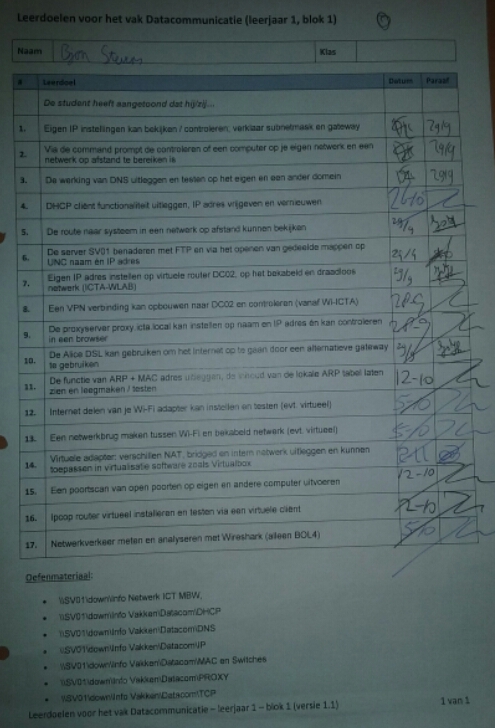 Leerdoelen voor het vak Datacommunicatie (leerjaar 1, blok 1)
Naam Klas
# Leerdoel Datum Paraaf
De student heeft aangetoond dat hij/zij...
1. Eigen IP instellingen kan bekijken / controleren, verklaar subnetmask en gateway 29/9
2. Via de command prompt de controleren of een computer op je eigen netwerk en een
netwerk op afstand te bereiken is 29/9
3. De werking van DNS uitleggen en testen op het eigen en een ander domein 29/9
4. DHCP client functionaliteit uitleggen, IP adres vrijgeven en vernieuwen 26-10
5. De route naar systeem in een netwerk op afstand kunnen bekijken 29/9
6. De server SV01 benaderen met FTP en via het openen van gedeelde mappen op
UNC naam én IP adres 29/9
7. Eigen IP adres instellen op virtuele router DC02, op het bekabeld en draadloos
netwerk (ICTA-WLAB) 29/9
8. Een VPN verbinding kan opbouwen naar DC02 en controleren (vanaf WI-ICTA) 28-9
9. De proxyserver proxy.icta.local kan instellen op naam en IP adres én kan controleren
in een browser 28-9
10. De Alice DSL kan gebruiken om het Internet op te gaan door een alternatieve gateway
te gebruiken
11. De functie van ARP + MAC adres uitleggen, de inhoud van de lokale ARP tabel laten
zien en leegmaken / testen 12-10
12. Internet delen van je Wi-Fi adapter kan instellen en testen (evt. virtueel) 5-10
13. Een netwerkbrug maken tussen Wi-Fi en bekabeld netwerk (evt. virtueel) 5-10
14. Virtuele adapter: verschillen NAT, bridged en intern netwerk uitleggen en kunnen
toepassen in virtualisatie software zoals Virtualbox
15. Een poortscan van open poorten op eigen en andere computer uitvoeren 12-10
16. Ipcop router virtueel installeren en testen via een virtuele client 12-10
17. Netwerkverkeer meten en analyseren met Wireshark (alleen BOL4) 5/10
Oefenmateriaal:
• \\SV01\down\Info Netwerk ICT MBW,
• \\SV01\down\Info Vakken\Datacom\DHCP
• \\SV01\down\Info Vakken\Datacom\DNS
• \\SV01\down\Info Vakken\Datacom\IP
• \\SV01\down\Info Vakken\Datacom\MAC en Switches
• \\SV01\down\Info Vakken\Datacom\PROXY
• \\SV01\down\Info Vakken\Datacom\TCP
Leerdoelen voor het vak Datacommunicatie – leerjaar 1 – blok 1 (versie 1.1) 1 van 1